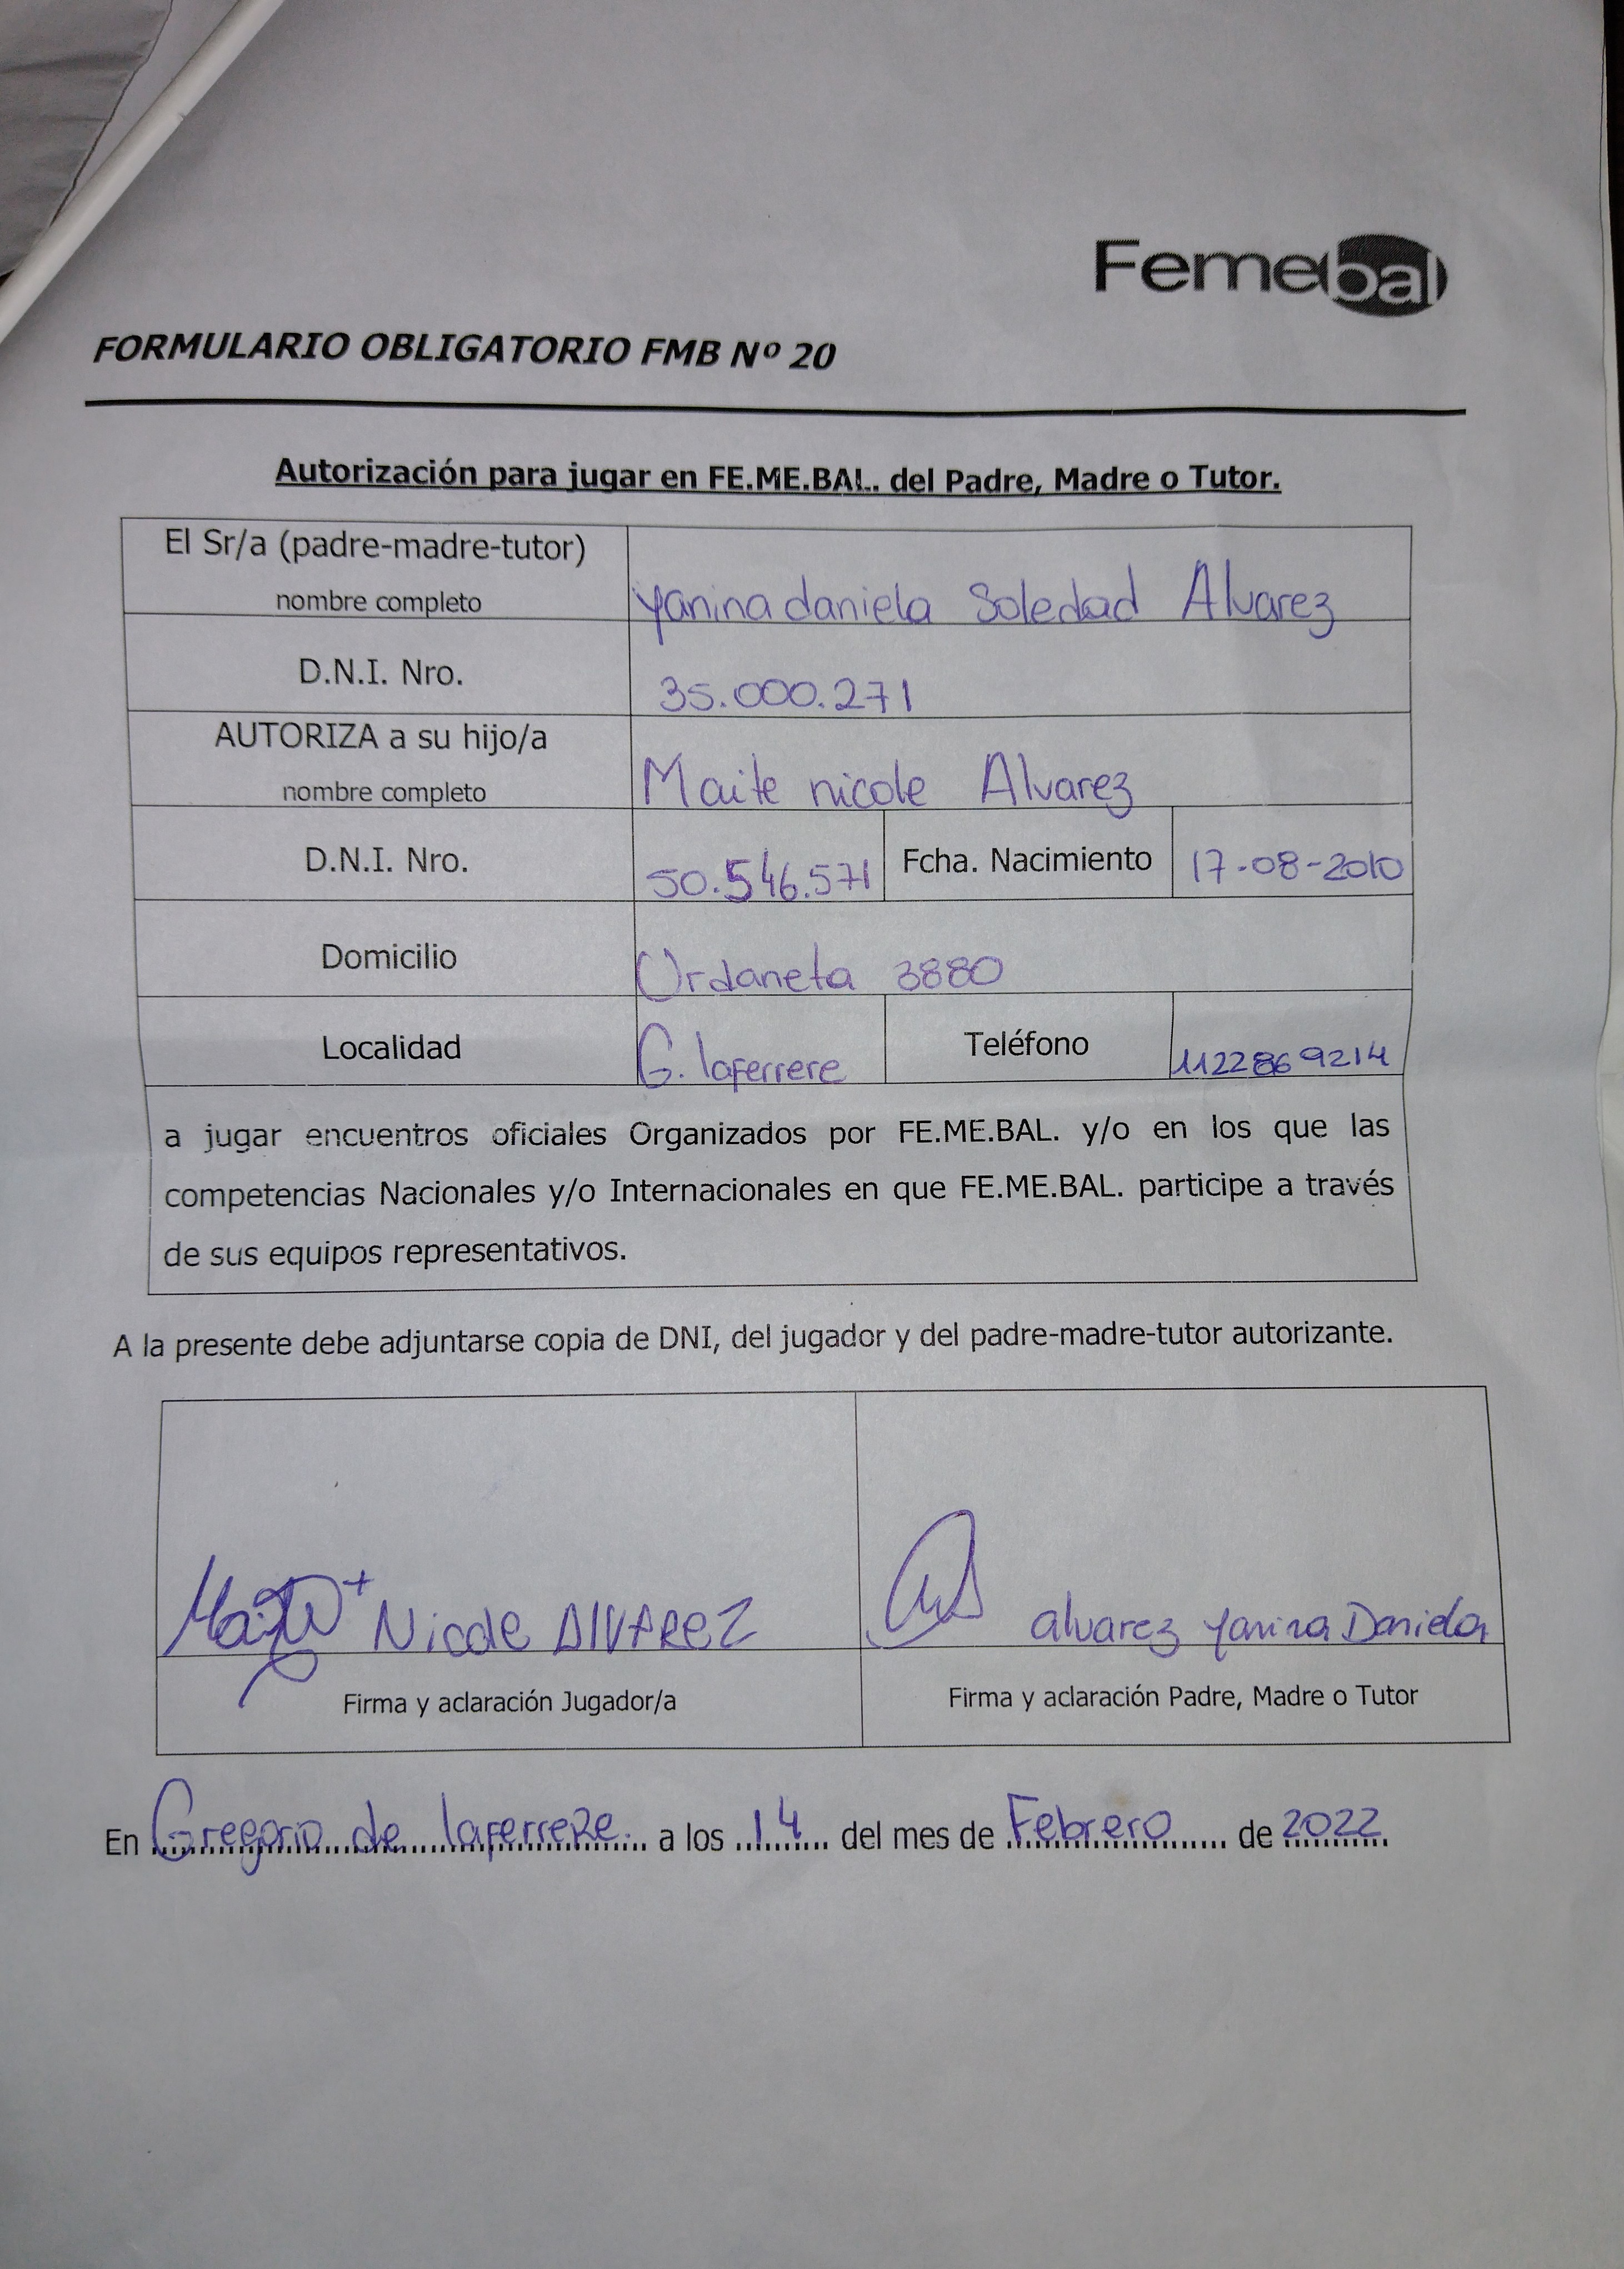 Femebal
FORMULARIO OBLIGATORIO FMB Nº 20
Autorización para jugar en FE.ME.BAL. del Padre, Madre o Tutor.
El Sr/a (padre-madre-tutor)
nombre completo
yanina daniela Soledad Alvarez
D.N.I. Nro.
35.000.271
AUTORIZA a su hijo/a
nombre completo
Maite nicole Alvarez
D.N.I. Nro.
50.546.571
Fcha. Nacimiento
17-08-2010
Domicilio
Urdaneta 3880
Localidad
G. laferrere
Teléfono
1122869214
a jugar encuentros oficiales Organizados por FE.ME.BAL. y/o en los que las
competencias Nacionales y/o Internacionales en que FE.ME.BAL. participe a través
de sus equipos representativos.
A la presente debe adjuntarse copia de DNI, del jugador y del padre-madre-tutor autorizante.
Nicole AlVAReZ
alvarez Yanina Daniela
Firma y aclaración Jugador/a
Firma y aclaración Padre, Madre o Tutor
En Gregorio de laferreRe. a los 14 del mes de Febrero de 2022